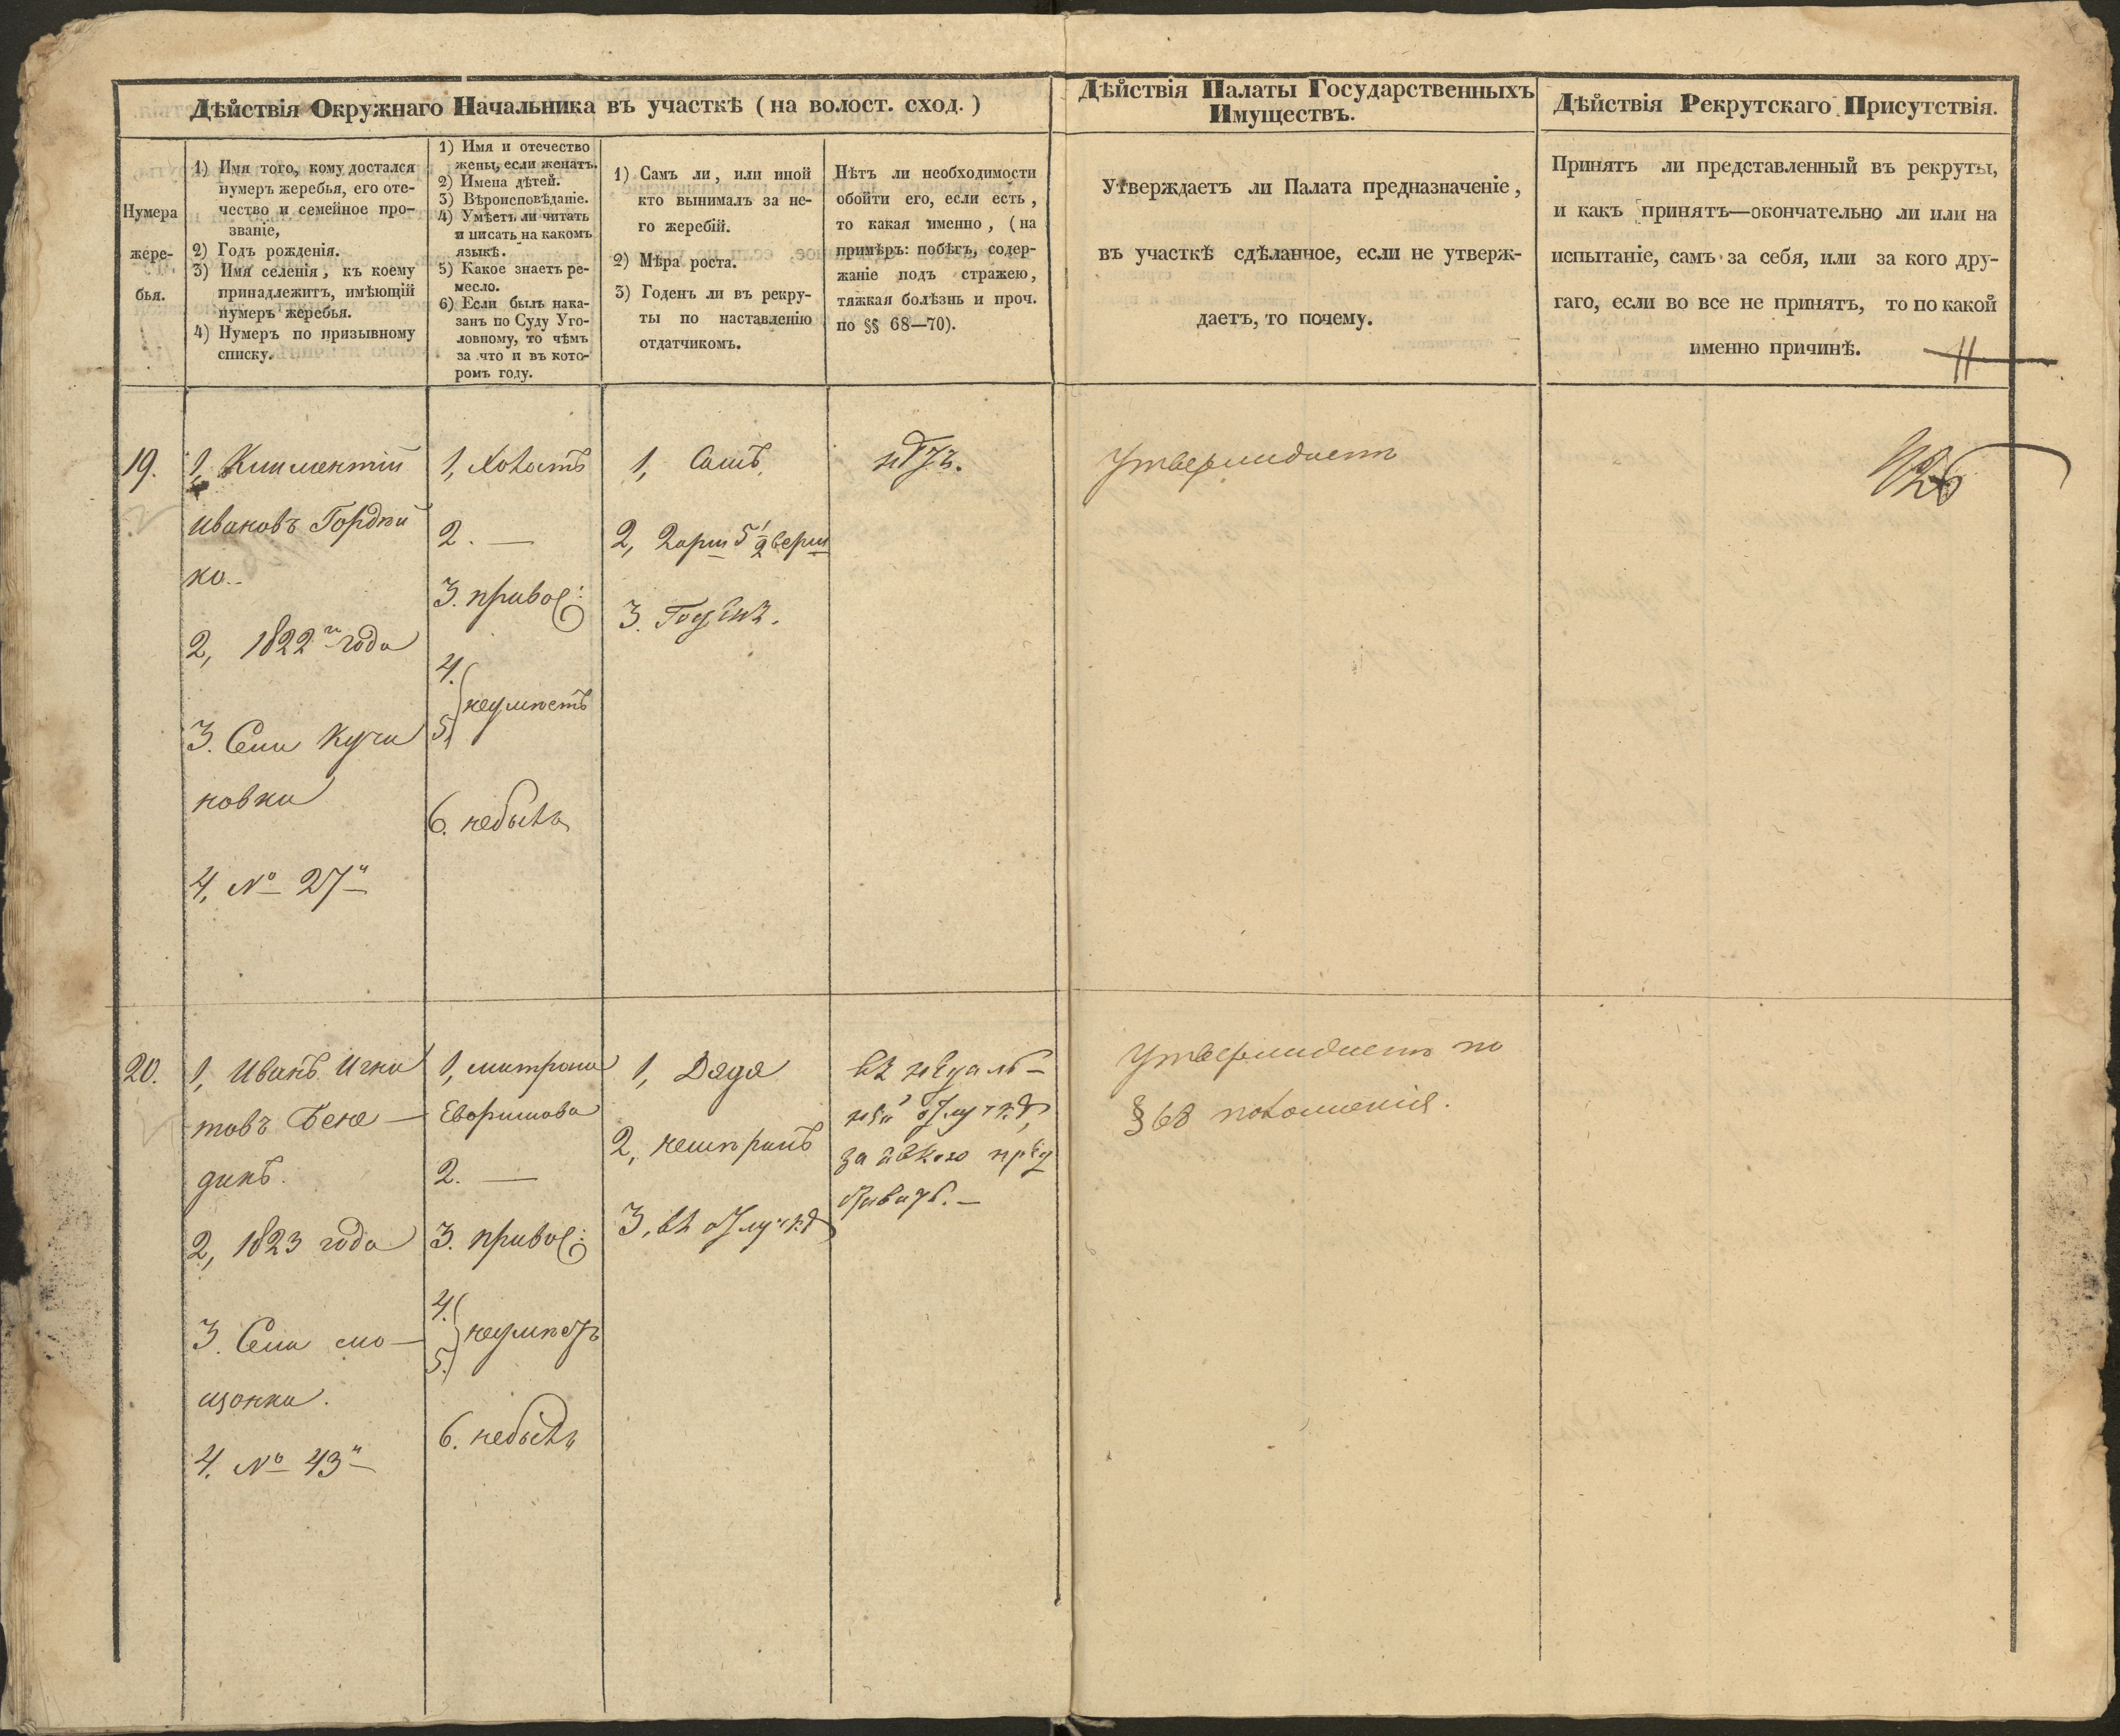 Дѣйствія Окружнаго Начальника въ участкѣ (на волост. сход.)
Дѣйствія Палаты Государственныхъ
Имуществъ.
Дѣйствія Рекрутскаго Присутствія.
Нумера
жере-
бья.
1) Имя того, кому достался
нумеръ жеребья, его оте-
чество и семейное про-
званіе,
2) Годъ рожденія.
3) Имя селенія, къ коему
принадлежитъ, имѣющій
нумеръ жеребья.
4) Нумеръ по призывному
списку.
1) Имя и отечество
жены, если женатъ.
2) Имена дѣтей.
3) Вѣроисповѣданіе.
4) Умѣетъ ли читать
и писать на какомъ
языкѣ.
5) Какое знаетъ ре-
месло.
6) Если былъ нака-
занъ по Суду Уго-
ловному, то чѣмъ
за что и въ кото-
ромъ году.
1) Самъ ли, или иной
кто вынималъ за не-
го жеребій.
2) Мѣра роста.
3) Годенъ ли въ рекру-
ты по наставленію
отдатчикомъ.
Нѣтъ ли необходимости
обойти его, если есть,
то какая именно, (на
примѣръ: побѣгъ, содер-
жаніе подъ стражею,
тяжкая болѣзнь и проч.
по §§ 68—70).
Утверждаетъ ли Палата предназначеніе,
въ участкѣ сдѣланное, если не утверж-
даетъ, то почему.
Принятъ ли представленный въ рекруты,
и какъ принятъ—окончательно ли или на
испытаніе, самъ за себя, или за кого дру-
гаго, если во все не принятъ, то по какой
именно причинѣ.
19.
1, Климентій
Ивановъ Гордѣй
ко..
2, 1822го года
3. Села Кучи
новки
4, № 27й
1, Холостъ
2. —
3. правос:
4.
5. неумѣетъ
6. небылъ
1, Самъ
2, 2 арш 5 1/2 верш
3. Годенъ.
нѣтъ.
Утверждаетъ
20.
1, Иванъ Игна
товъ Бене —
динъ.
2, 1823 года
3. Села мо —
щонки.
4. № 43й
1,
2. —
3. правос:
4.
5. неумѣетъ
6. небылъ
1, Дядя
2, немѣрянъ
3, въ отлучкѣ
въ недаль-
ней отлучкѣ,
Утверждаетъ по
§ 68 положенія.